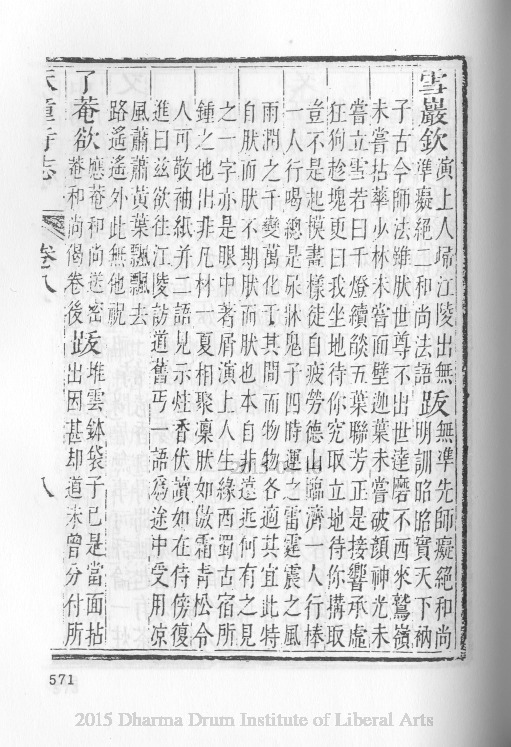 雪巖欽演上人歸江陵出無準癡絕二和尚法語跋無準先師癡絕和尚明訓昭昭實天下衲
子古今師法雖肰世尊不出世達磨不西來鷲嶺
未嘗拈華少林未嘗面壁迦葉未嘗破顏神光未
嘗立雪若曰千燈續燄五葉聯芳正是接響承虛
狂狗趁塊更曰我坐地待你究取立地待你搆取
豈不是起模畫樣徒自疲勞德山臨濟一人行棒
一人行喝總是屎牀鬼子四時運之雷霆震之風
雨潤之千變萬化于其間而物物各適其宜此特
自肰而肰不期肰而肰也本自非遠近何有之見
之一字亦是眼中著屑演上人生緣西蜀古宿所
鍾之地出非凡材一夏相聚凜肰如傲霜青松令
人可敬袖紙并二語見示炷香伏讀如在侍傍復
進曰茲欲往江陵訪道舊丐一語為途中受用涼
風蕭蕭黃葉飄飄去
路遙遙外此無他祝
了菴欲應菴和尚送密菴和尚偈卷後跋堆雲鉢袋子已是當面拈出因甚却道未曾分付所
天童寺志
卷八
八
571
2015 Dharma Drum Institute of Liberal Arts